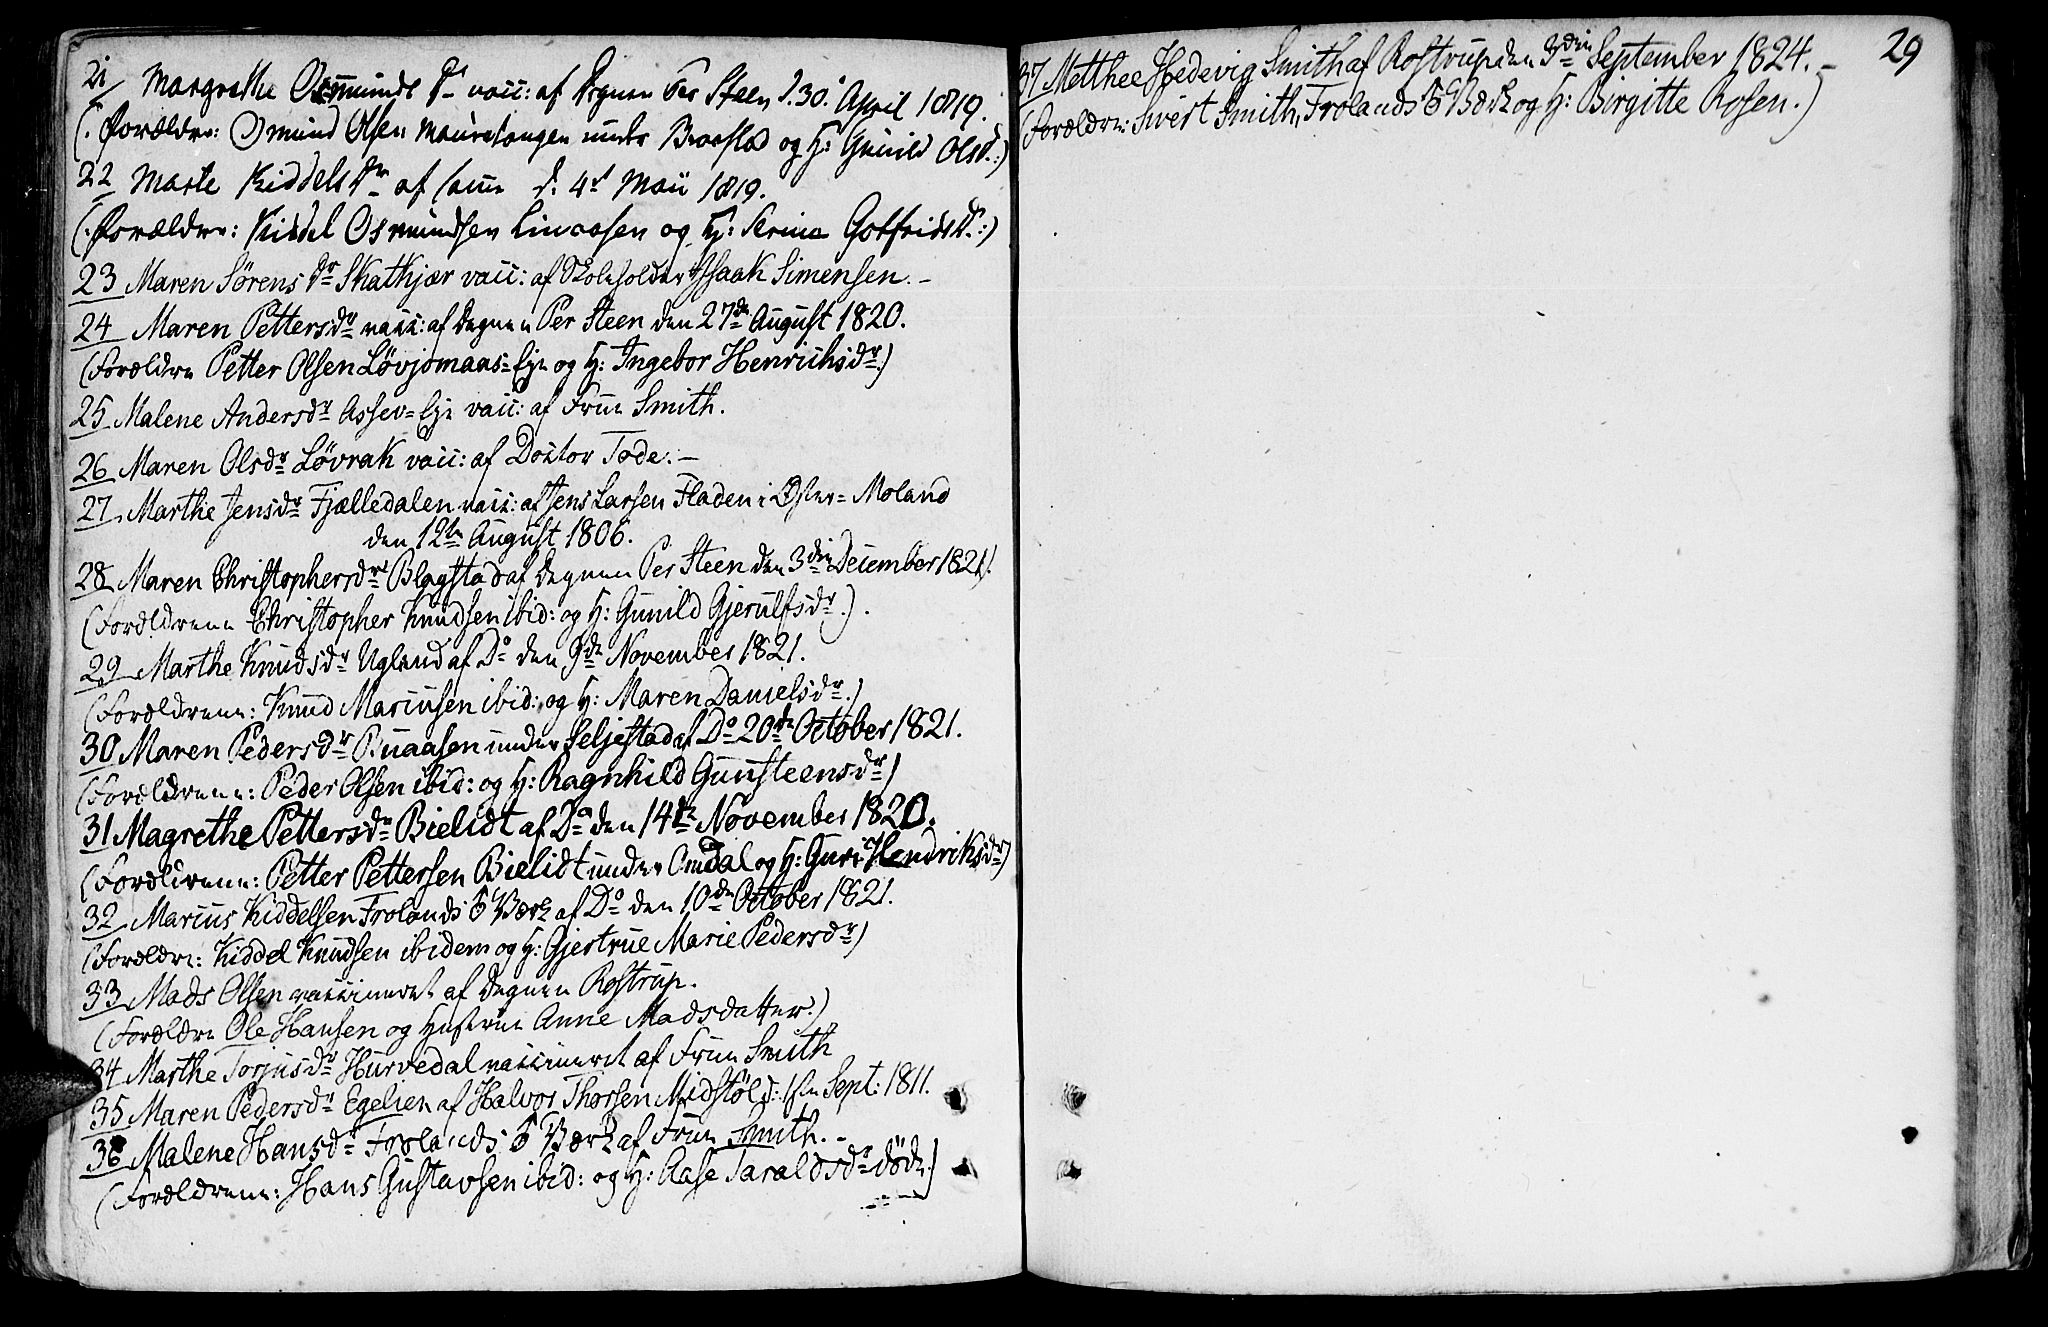 21 Margrethe Osmunds Dr vacc: af Degnen Per Steen d. 30. April 1819.
(: Forældre: Osmund Olsen under Braastad og H: Gunild Olsd:)
22 Marte Kiddels Dr af samme d. 4de Maii 1819.
(: Forældre: Kiddel Osmundsen Linaasen og H: Serine Gotfridsd:)
23 Maren Sørens dr Skatkjær vacc: af Skoleholder Issaak Simensen. –
24 Maren Pettersdr vacc: af Degnen Per Steen den 27de August 1820.
(Forældre Petter Olsen Løvjomaas-Eje og H: Ingebor Henrichsdr.)
25 Malene Andersdr Assev-Eje vacc: af Frue Smith.
26 Maren Olsdr Løvrak vacc: af Doctor Tode. –
27 Marthe Jensdr Fjælledalen vacc: af Jens Larsen Fladen i Øster-Moland
den 12te August 1806.
28 Maren Christophersdr Blagstad af Degnen Per Steen den 3die December 1821.
(Forældrene Christopher Knudsen ibid: og H: Gunild Gjerulfsdr.).
29 Marthe Knudsdr Ugland af Do den 9de November 1821.
(Forældrene: Knud Mariusen ibid: og H: Maren Danielsdr.)
30 Maren Pedersdr Buaasen under Seljestad af Do 20de October 1821.
(Forældrene: Peder Olsen ibid: og H: Ragnhild Gunsteensdr)
31 Magrethe Pettersdr Bielidt af Do den 14de November 1820.
(Forældrene: Petter Pettersen Bielidt under Omdal og H: Guri Hendriksdr)
32 Marius Kiddelsen Frolands Værk af Do den 10de October 1821.
(Forældre: Kiddel Knudsen ibidem og H: Gjertrue Marie Pedersdr)
33 Mads Olsen vaccineret af Degnen Rostrup.
(Forældre Ole Hansen og Hustrue Anne Madsdatter.)
34 Marthe Torjusdr Hurvedal vaccineret af Frue Smith
35 Maren Pedersdr Egelien af Halvor Thorsen Midstøl d: 1ste Sept: 1811.
36 Malene Hansdr Frolands Værk af Frue Smith. –
(Forældrene: Hans Gustavsen ibid: og H: Aase Taraldsdr døde.)
29
37 Metthee Hedevig Smith af Rostrup den 3die September 1824. –
(Forældre: Sivert Smith, Frolands Værk og H: Birgitte Rosen.)